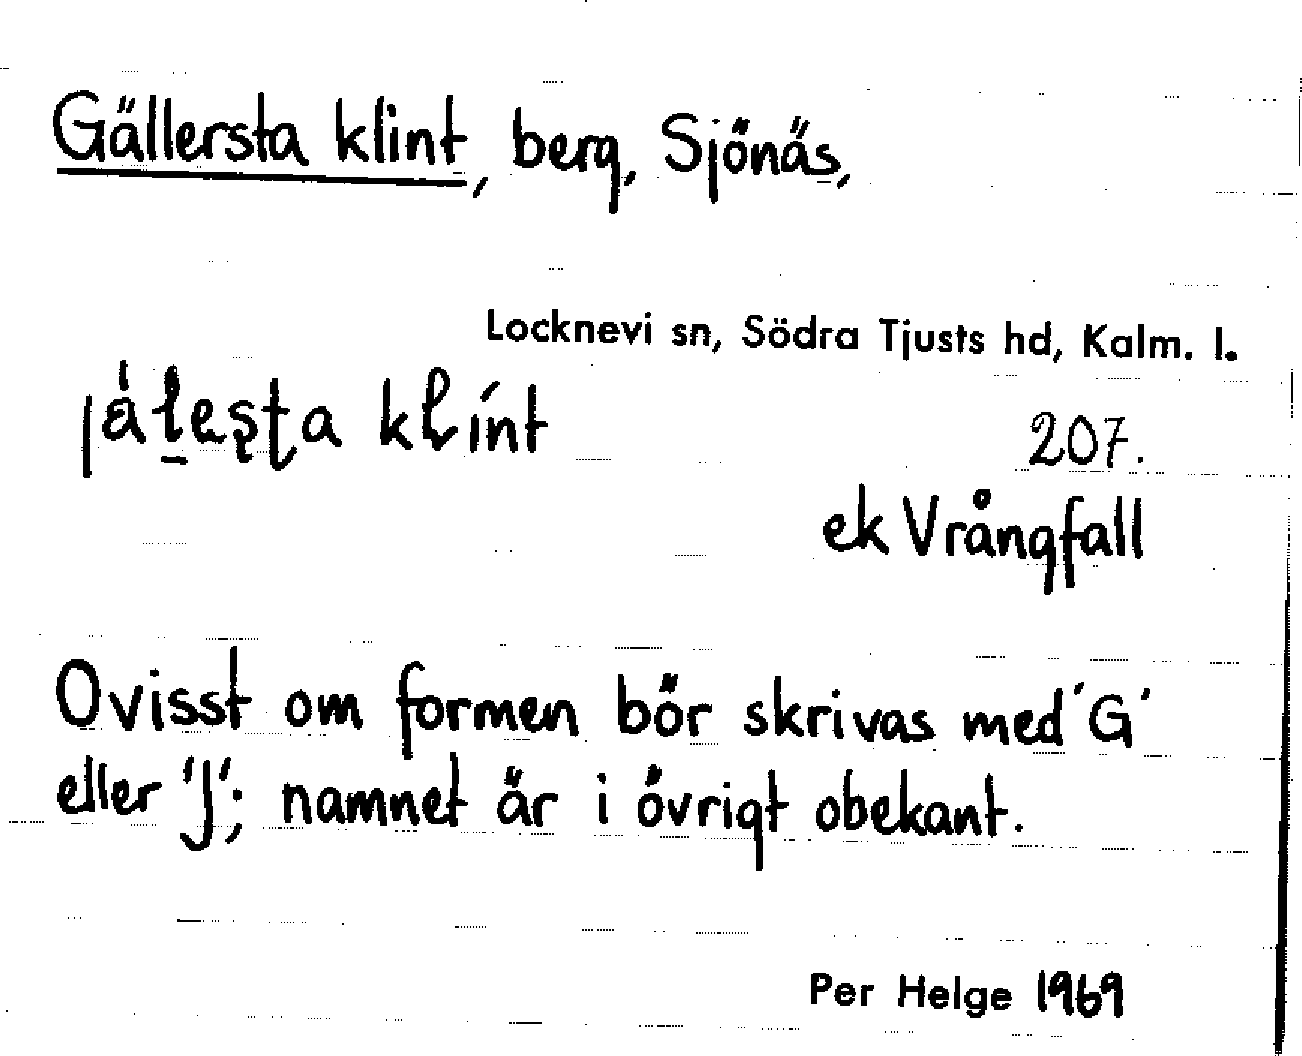 Gällersta klint, berg, Sjönäs,
Locknevi sn, Södra Tjusts hd, Kalm. l.
klint
207.
ek Vrångfall
Ovisst om formen bör skrivas med 'G'
eller 'J'; namnet är i övrigt obekant.
Per Helge 1969